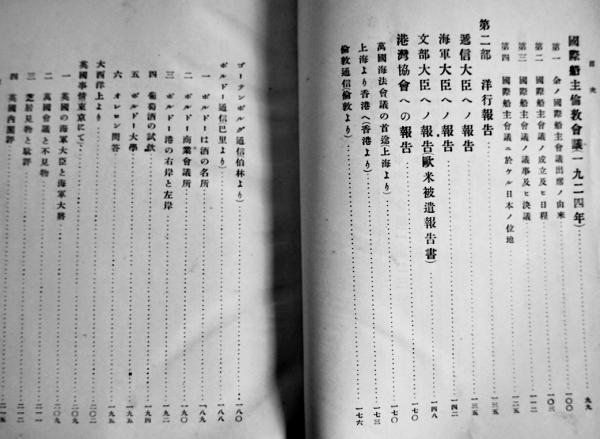 目次
國際船主倫敦會議(一九二四年)……九九
第一 余ノ國際船主會議出席ノ由來……一〇〇
第二 國際船主會議ノ成立及ヒ日程……一〇三
第三 國際船主會議ノ議事及ヒ決議……一一二
第四 國際船主會議ニ於ケル日本ノ位地……一二五
第二部 洋行報告……一三五
遞信大臣ヘノ報告……一三五
海軍大臣ヘノ報告……一四二
文部大臣ヘノ報告(歐米被遣報告書)……一四八
港灣協會への報告……一七〇
萬國海法會議の首途(上海より)……一七〇
上海より香港へ(香港より)……一七三
倫敦通信(倫敦より)……一七六
ゴーテンボルグ通信(伯林より)……一八〇
ボルドー通信(巴里より)……一八九
一 ボルドーは酒の名所……一八九
二 ボルドー商業會議所……一九〇
三 ボルドー港の右岸と左岸……一九二
四 葡萄酒の試飮……一九四
五 ボルドー大學……一九五
六 オレロン問答……一九五
大西洋上より……二〇二
英國事情(東京にて)……二〇九
一 英國の海軍大臣と海軍大將……二〇九
二 萬國會議と不見物……二一一
三 芝居見物と駄評……二一二
四 英國内閣評……二一五